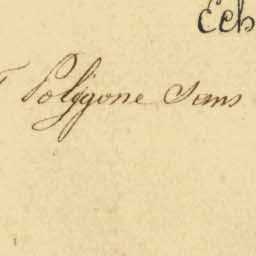 Ech
Polygone Sans